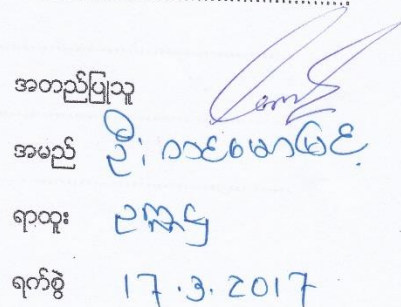 အတည်ပြုသူ
အမည် ဦး တင်မောင်မြင့်
ရာထူး ဥက္ကဋ္ဌ
ရက်စွဲ 17.3.2017